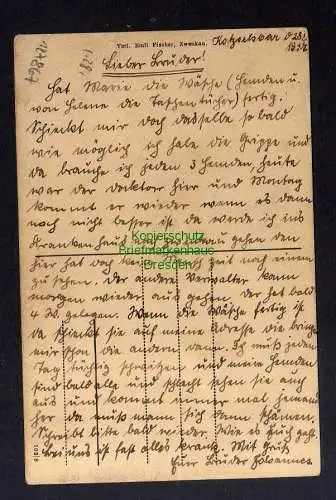 Verl. Emil Fischer, Zwenkau.
Lieber Bruder!
Hat Marie die Wäsche (Hemden u.
von Helene die Taschentücher) fertig.
Schickt mir doch dasselbe so bald
wie möglich ich habe die Grippe und
da brauche ich jeden 3 Hemden, heute
war der Doktor hier und Montag
kommt er wieder wenn es dann
noch nicht besser ist da werde ich ins
Krankenhaus nach Zwenkau gehen den
hier hat doch kein Mensch zeit nach einen
zu sehen. Der andere Verwalter kann
morgen wieder aus gehen, der hat bald
4 W. gelegen. Wenn die Wäsche fertig ist
da schickt sie auf meine Adresse die bringen
mir schon die andern dann. Ich muß jeden
Tag tüchtig schwitzen und meine Hemden
sind bald alle und schlecht sehen sie auch
aus und kommt immer mal jemand
her da muß mann sich dann schämen.
Schreibt bitte bald wieder. Wie es Euch geht.
bei uns ist fast alles krank. Mit Gruß
Euer Bruder Johannes.
Kopierschutz
Briefmarkenhaus
Dresden